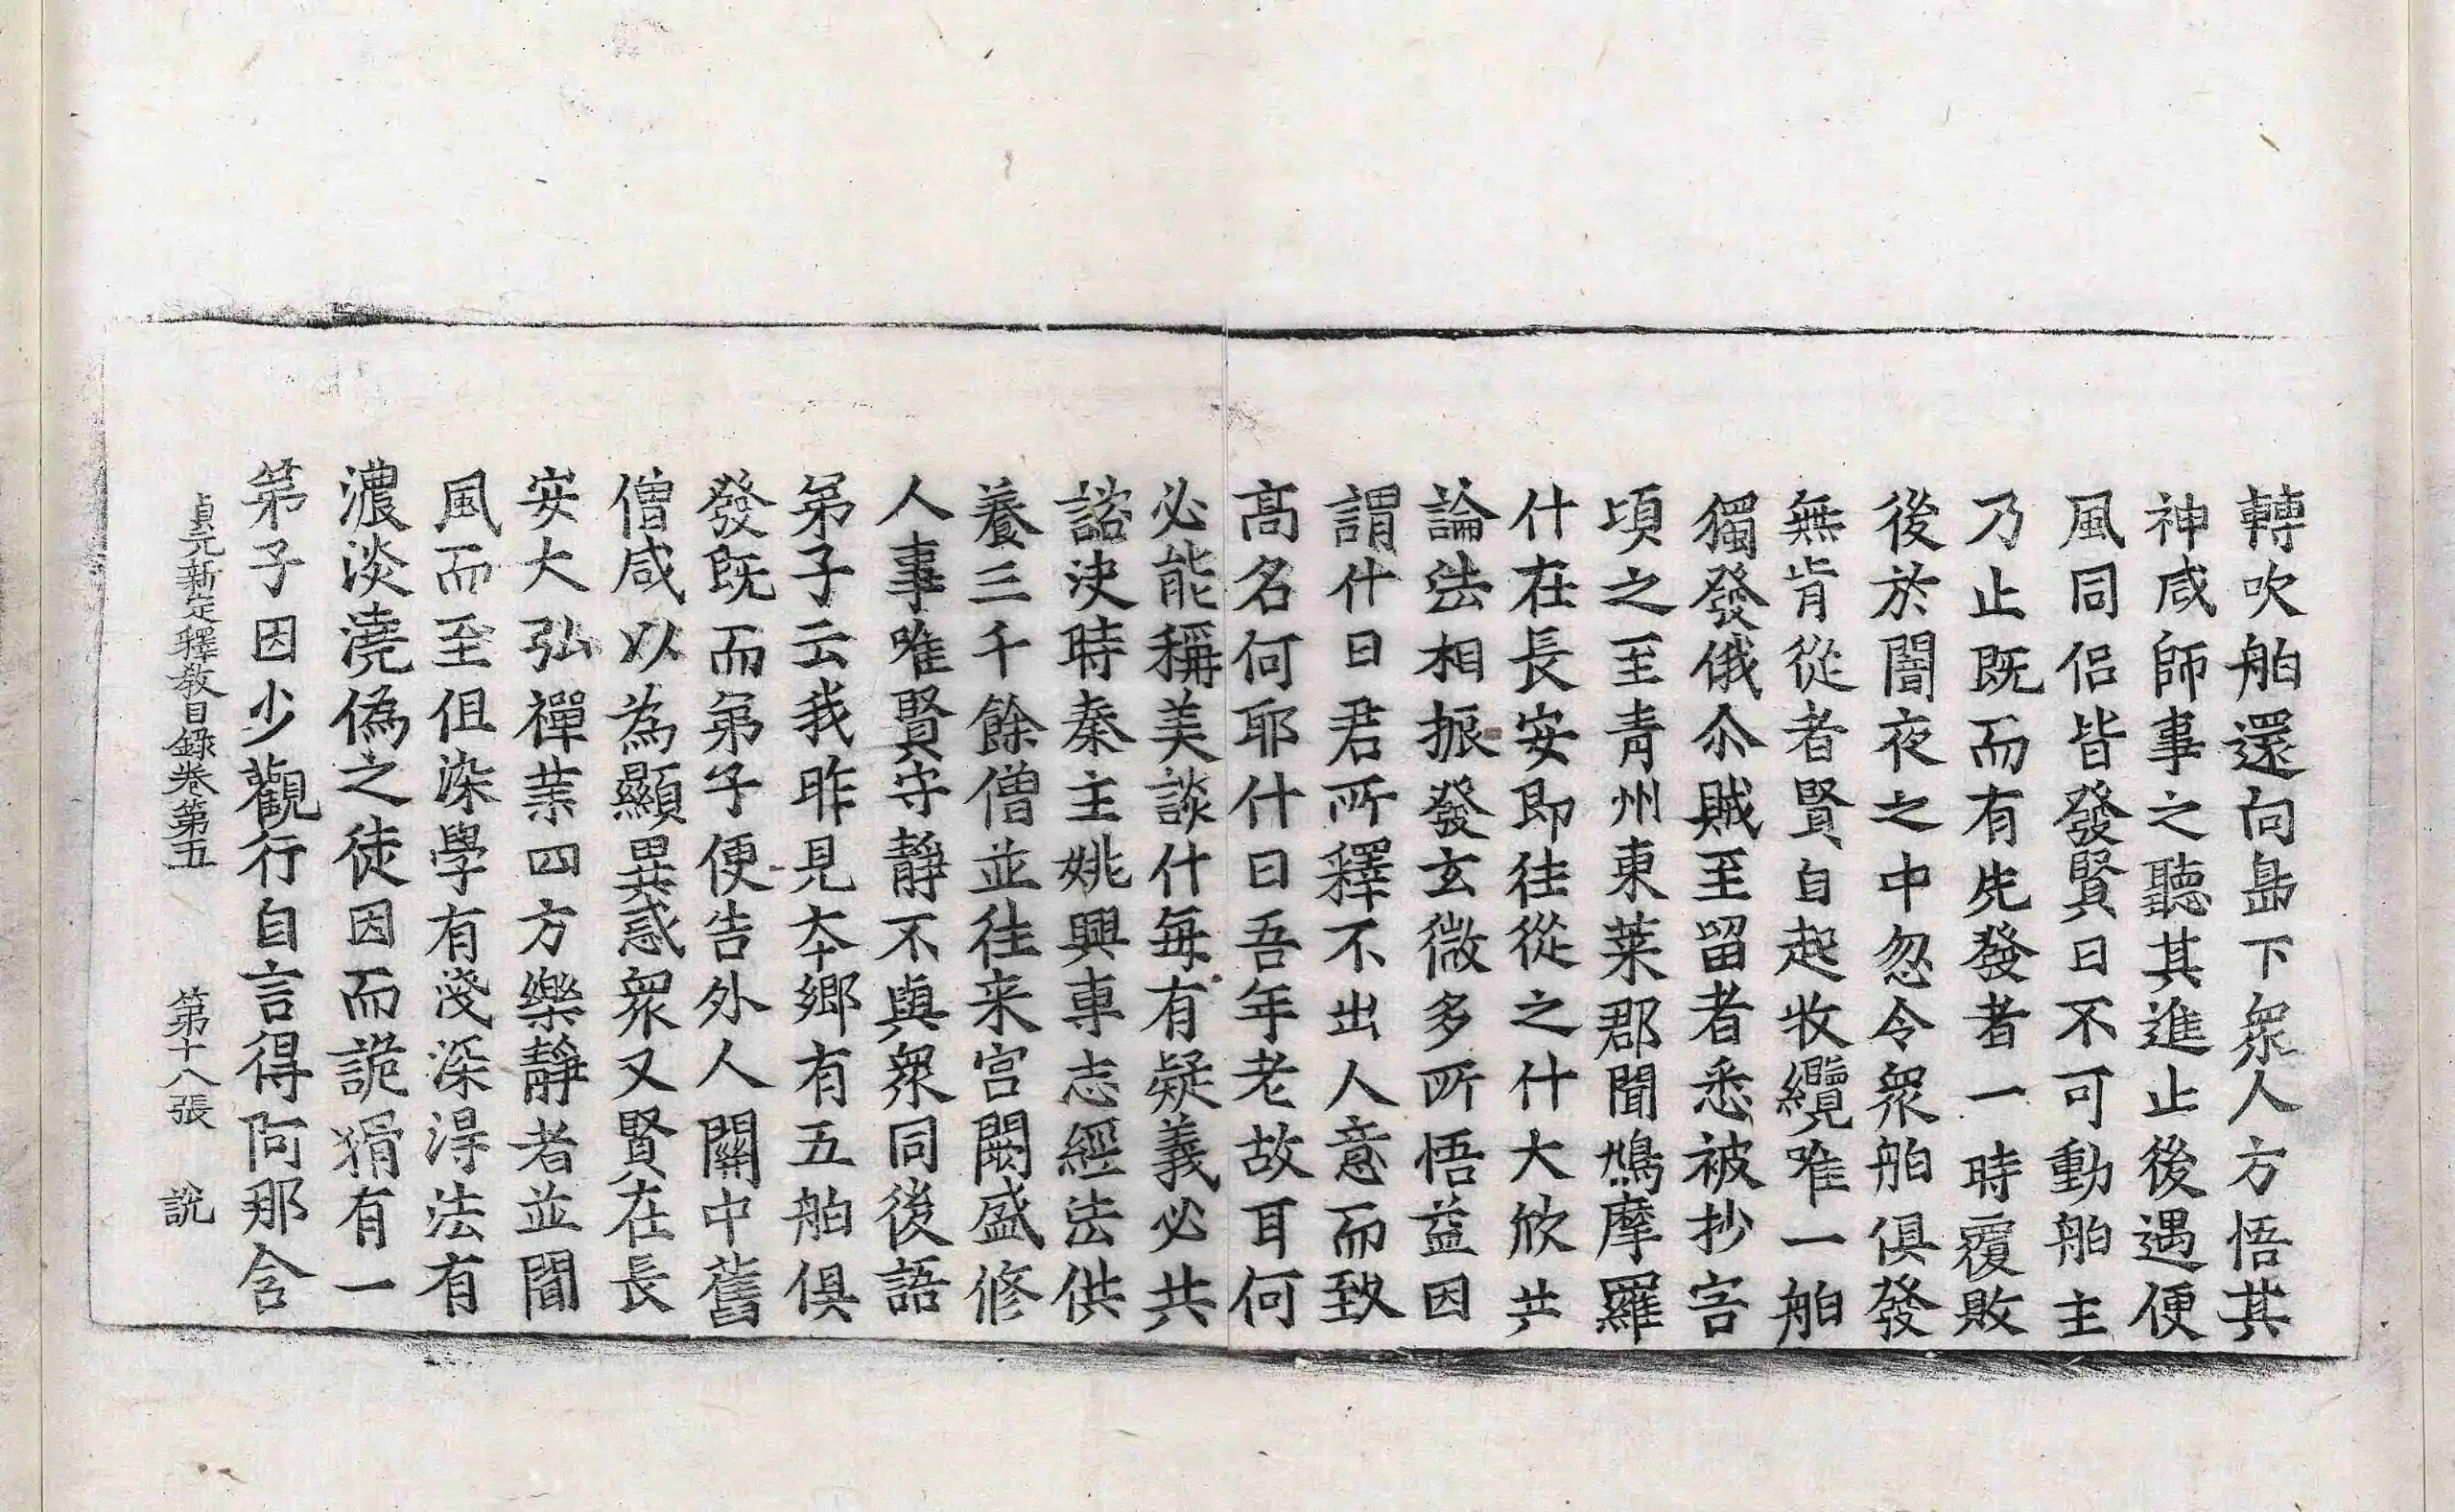 轉吹舶還向㠀下衆人方悟其
神咸師事之聽其進止後遇便
風同侶皆發賢曰不可動舶主
乃止既而有先發者一時覆敗
後於闇夜之中忽令衆舶俱發
無肯從者賢自起收纜唯一舶
獨發俄尒賊至留者悉被抄害
頃之至青州東萊郡聞鳩摩羅
什在長安即往從之什大欣共
論法相振發玄微多所悟益因
謂什曰君所釋不出人意而致
髙名何耶什曰吾年老故耳何
必能稱美談什每有疑義必共
諮決時秦主姚興專志經法供
養三千餘僧並往来宮闕盛修
人事唯賢守靜不與衆同後語
弟子云我昨見本鄉有五舶俱
發既而弟子便告外人關中舊
僧咸以為顯異惑衆又賢在長
安大弘禪業四方樂靜者並聞
風而至但染學有淺深得法有
濃淡澆偽之徒因而詭猾有一
第子因少觀行自言得阿那含
貞元新定釋敎目録卷第五 第十八張 說